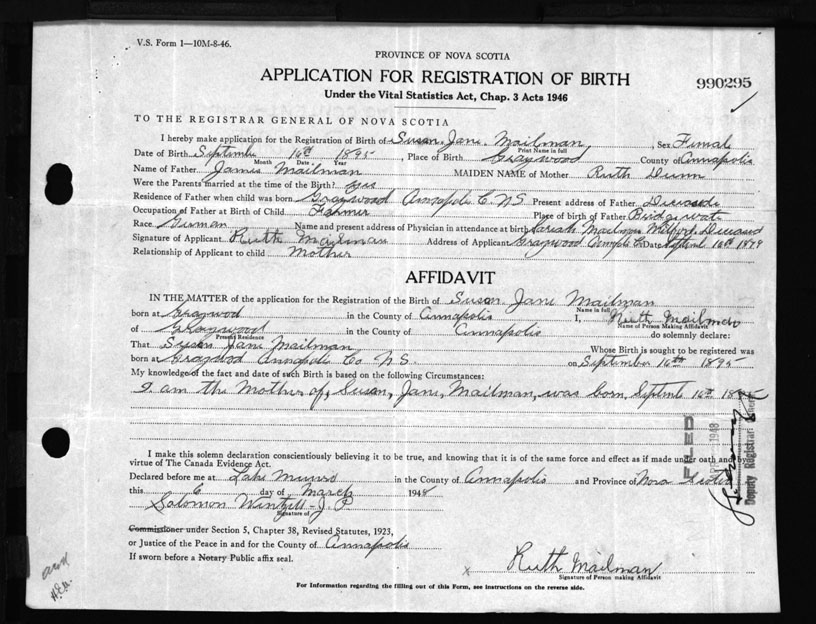 V.S. Form 1—10M-8-46.
PROVINCE OF NOVA SCOTIA
APPLICATION FOR REGISTRATION OF BIRTH
990295
Under the Vital Statistics Act, Chap. 3 Acts 1946
TO THE REGISTRAR GENERAL OF NOVA SCOTIA
I hereby make application for the Registration of Birth of Susan Jane Mailman, Sex Female
Print Name in full
Date of Birth September 16th 1895, Place of Birth Graywood County of Annapolis
Month Date Year
Name of Father James Mailman MAIDEN NAME of Mother Ruth Dunn
Were the Parents married at the time of the Birth? yes
Residence of Father when child was born Graywood Annapolis Co. N.S. Present address of Father Deceased
Occupation of Father at Birth of Child Farmer Place of birth of Father Bridgewater
Race German Name and present address of Physician in attendance at birth Sariah Mailman Milford Deceased
Signature of Applicant Ruth Mailman Address of Applicant Graywood Annapolis Co Date Septemb 16th
Relationship of Applicant to child Mother
AFFIDAVIT
IN THE MATTER of the application for the Registration of the Birth of Susan Jane Mailman
Name in full
born at Graywood in the County of Annapolis I, Ruth Mailman
Name of Person Making Affidavit
of Graywood in the County of Annapolis do solemnly declare:
Present Residence
That Susan Jane Mailman Whose Birth is sought to be registered was
born at Graywood Annapolis Co N.S. on September 16th 1895
My knowledge of the fact and date of such Birth is based on the following Circumstances:
I am the Mother of, Susan, Jane, Mailman, was born, Septmb 16th 1895
I make this solemn declaration conscientiously believing it to be true, and knowing that it is of the same force and effect as if made under oath and by
virtue of The Canada Evidence Act.
Declared before me at Lake Munro in the County of Annapolis and Province of Nova Scotia
this 6 day of March 1948
Solomon J.P
Signature of
Commissioner under Section 5, Chapter 38, Revised Statutes, 1923,
or Justice of the Peace in and for the County of Annapolis
If sworn before a Notary Public affix seal.
x Ruth Mailman
Signature of Person making Affidavit
For Information regarding the filling out of this Form, see instructions on the reverse side.
FILED
1948
Deputy Registrar General